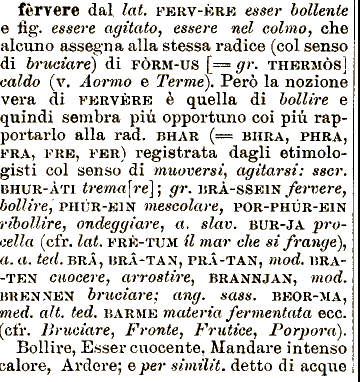 fèrvere dal lat. FERV-ÈRE esser bollente
e fig. essere agitato, essere nel colmo, che
alcuno assegna alla stessa radice (col senso
di bruciare) di FÒRM-US [= gr. THERMÒS]
caldo (v. Aormo e Terme). Però la nozione
vera di FERVÈRE è quella di bollire e
quindi sembra piú opportuno coi piú rap-
portarlo alla rad. BHAR (= BHRA, PHRA,
FRA, FRE, FER) registrata dagli etimolo-
gisti col senso di muoversi, agitarsi: sscr.
BHUR-ÀTI trema[re]; gr. BRÁ-SSEIN fervere,
bollire, PHÚR-EIN mescolare, POR-PHÚR-EIN
ribollire, ondeggiare, a. slav. BUR-JA pro-
cella (cfr. lat. FRÈ-TUM il mar che si frange),
a. a. ted. BRÂ, BRÂ-TAN, PRÂ-TAN, mod. BRA-
-TEN cuocere, arrostire, BRANNJAN, mod.
BRENNEN bruciare; ang. sass. BEOR-MA,
med. alt. ted. BARME materia fermentata ecc.
(cfr. Bruciare, Fronte, Frutice, Porpora).
Bollire, Esser cuocente, Mandare intenso
calore, Ardere; e per similit. detto di acque